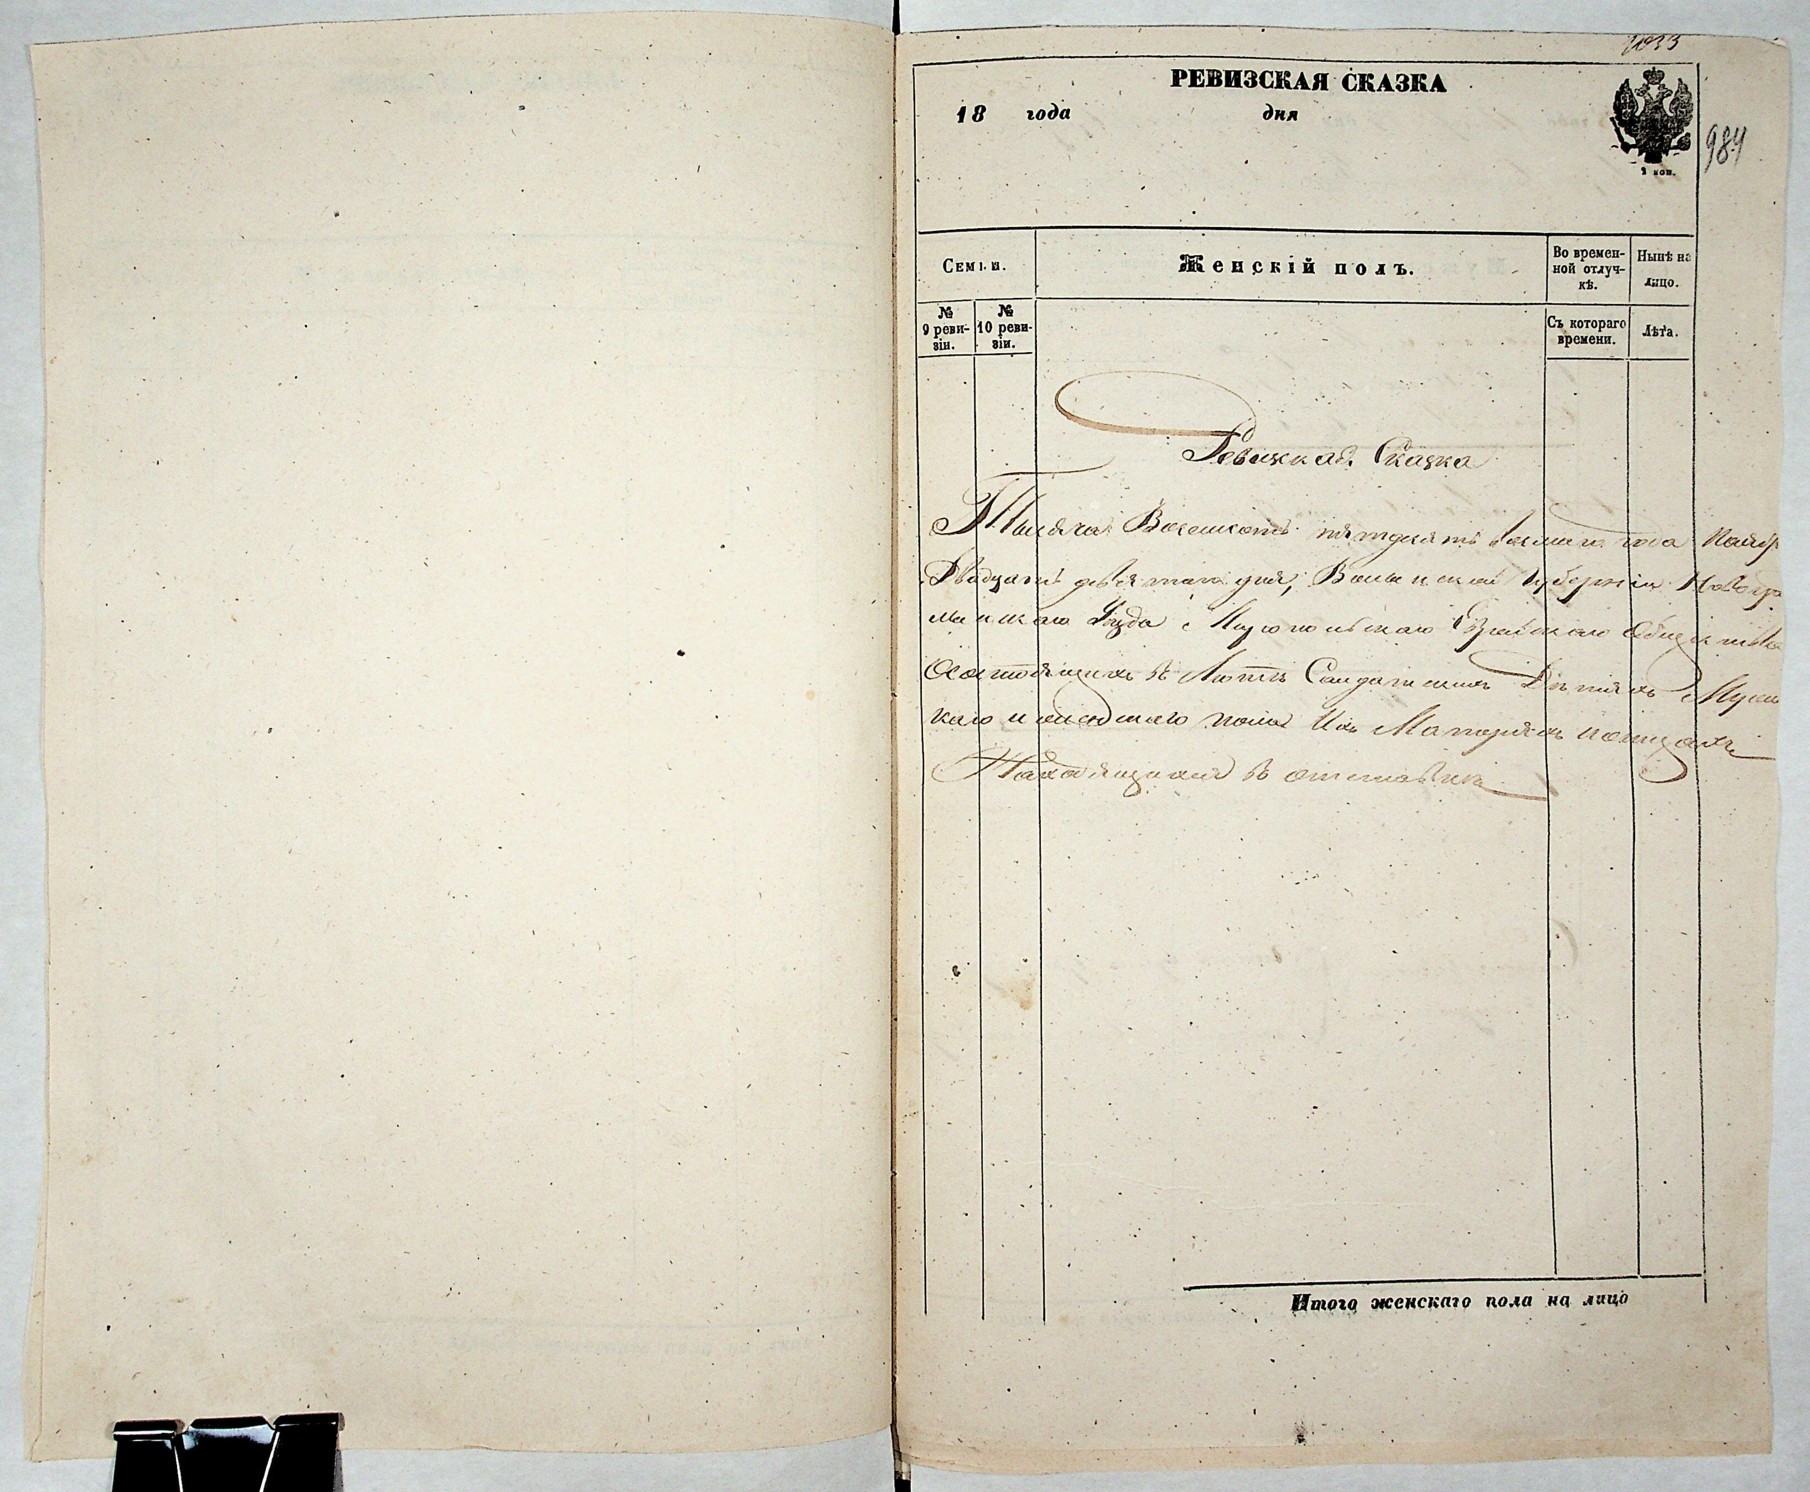 1033
РЕВИЗСКАЯ СКАЗКА
18 года дня
984
2 коп.
Семьи.
Женскій полъ.
Во времен-
ной отлуч-
кѣ.
Нынѣ на
лицо.
№
9 реви-
зіи.
№
10 реви-
зіи.
Съ котораго
времени.
Лѣта.
Ревизкая Сказка
Тысяча Восемсотъ пятдесятъ осмаго года Ноябр
Двадцать девятаго дня, Волынской Губерніи Новогра
мискаго Уезда Миропольскаго Еврейскаго Общества
Состоящихъ въ Солдатскихъ Дѣтяхъ Мужс
каго и женскаго пола Ихъ Матеряхъ
Находящихся въ отставки
Итого женскаго пола на лицо